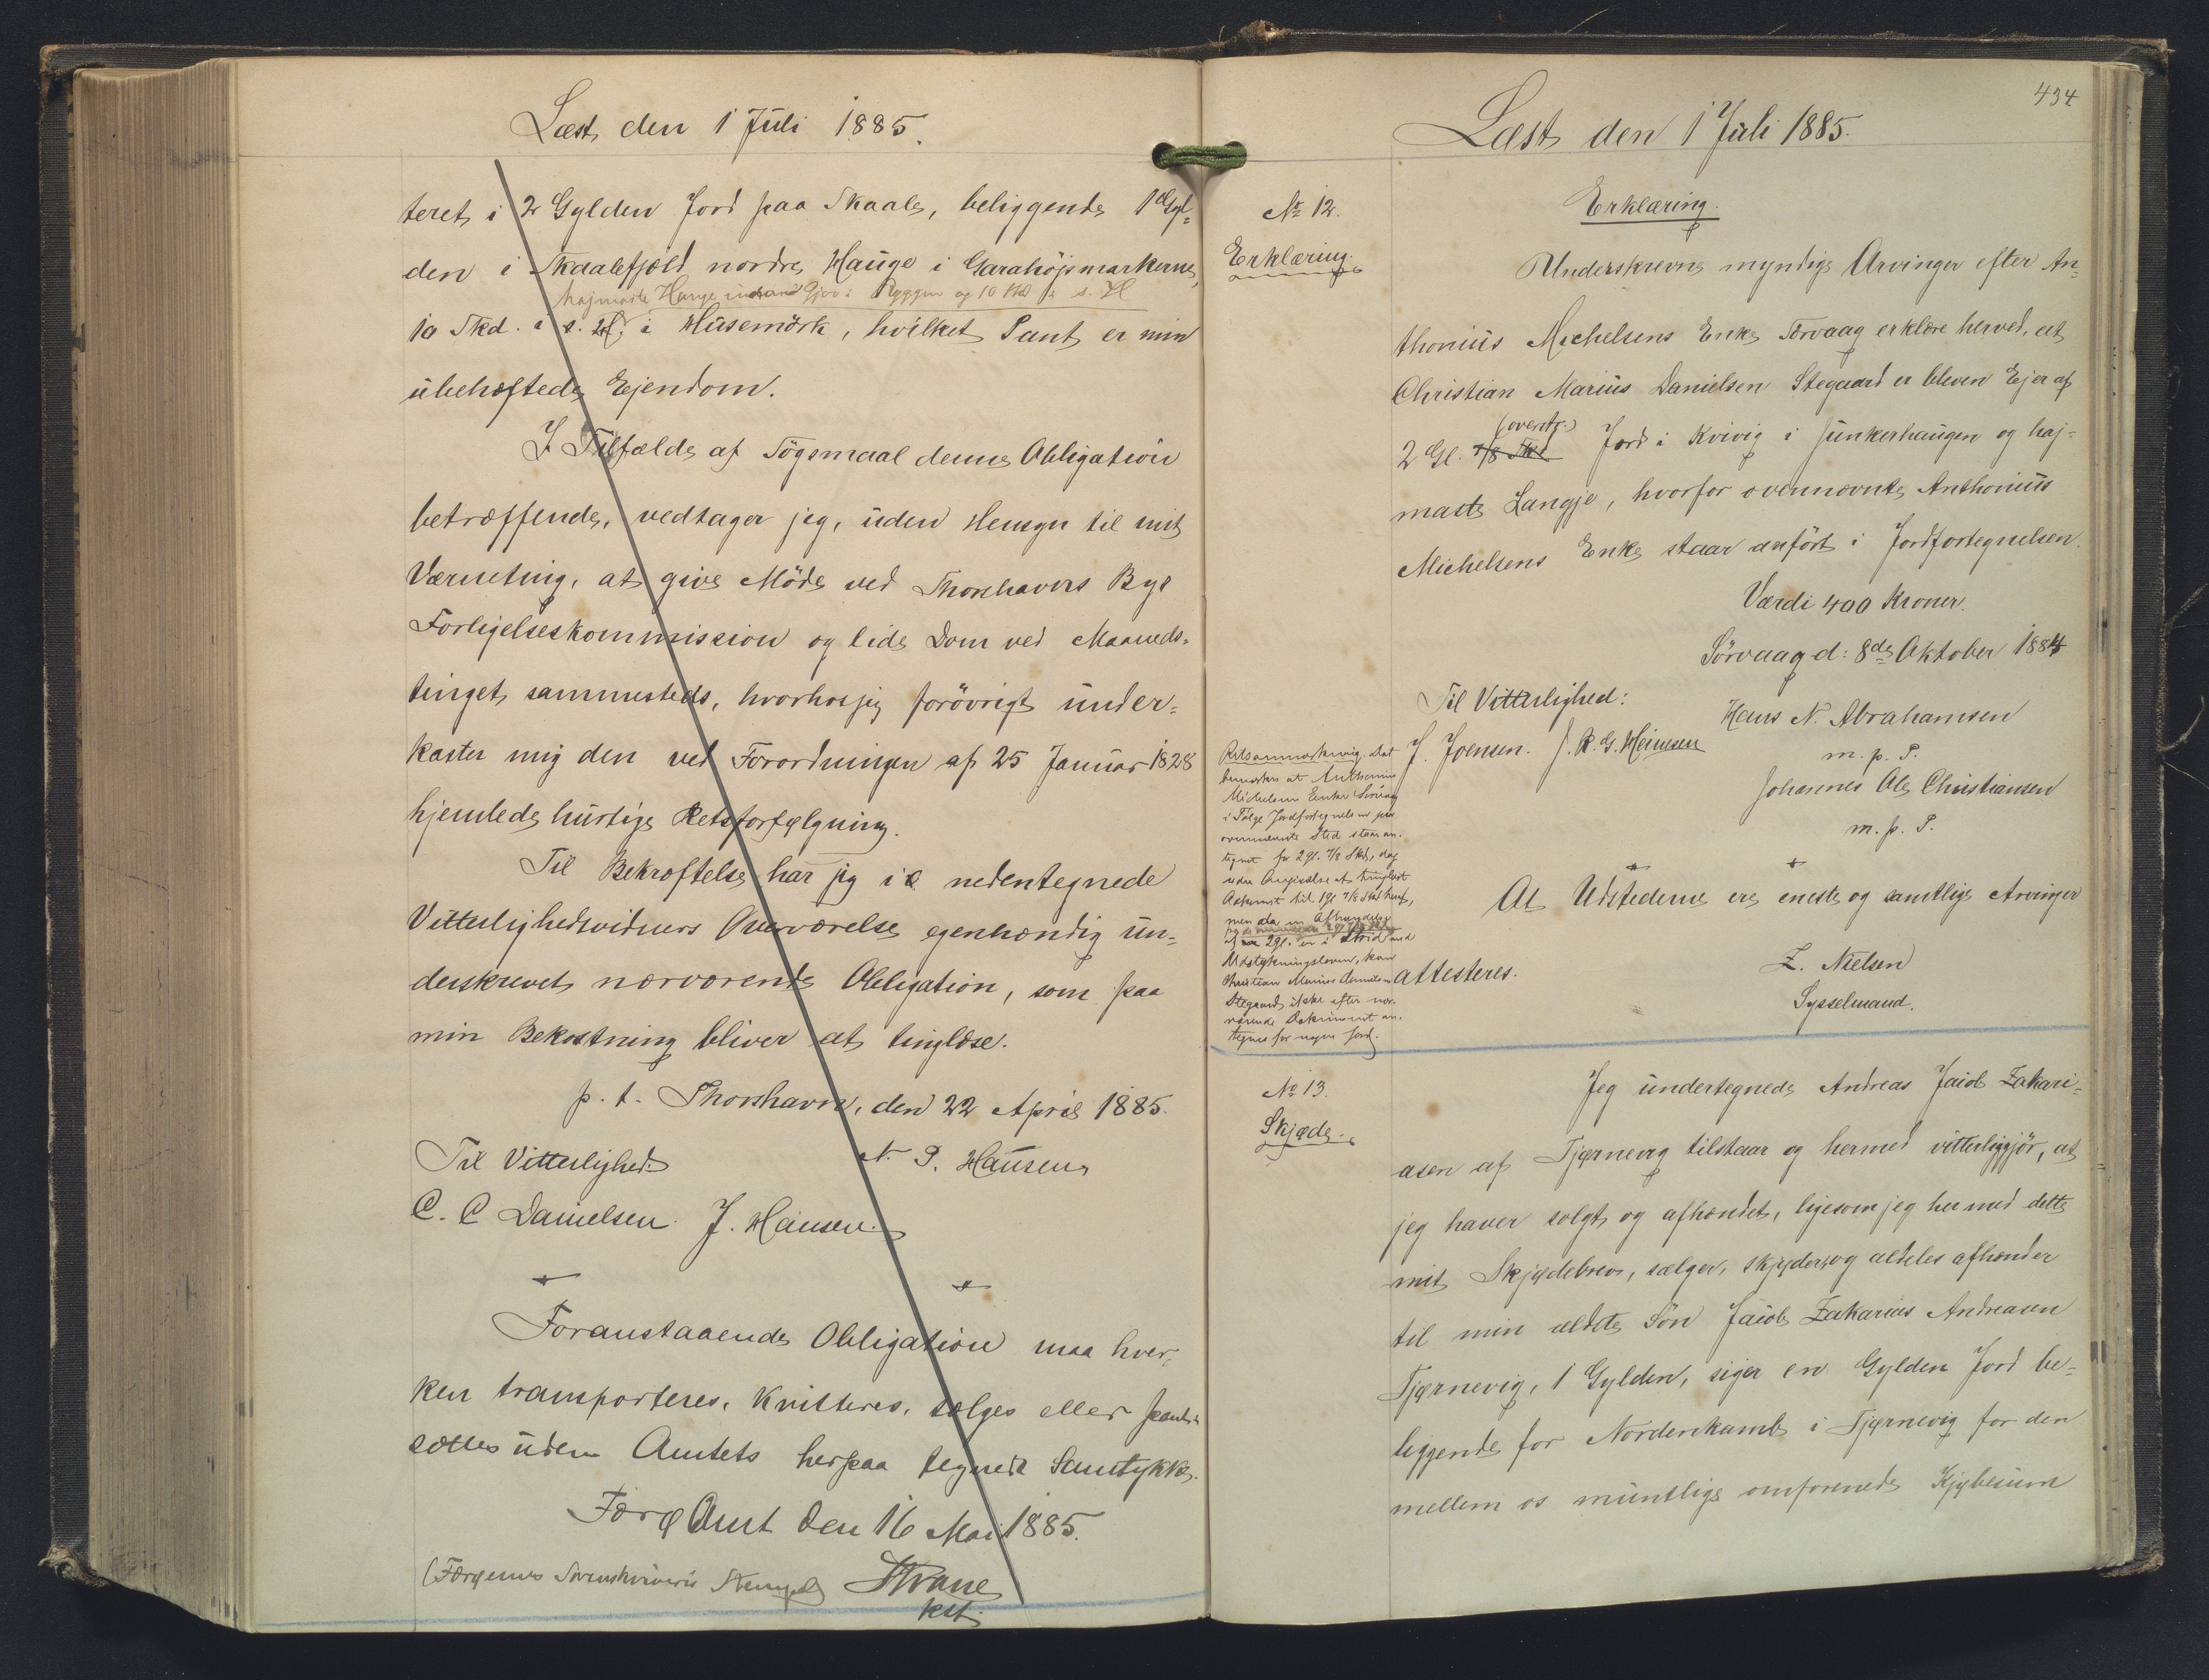 Læst den 1 Juli 1885.
teret i 2 Gylden Jord paa Skaale, beliggende 1 Gyl=
den i Skaalefjeld nordre Hauge i Garahöjsmarkerne,
højmarte Hauge indand Gjov i Ryggen og 10 Skd i s. H
10 Skd. i s. H. i Husemörk, hvilket Pant er min
ubehæftede Ejendom.
I Tilfælde af Sögsmaal denne Obligation
betræffende, vedtager jeg, uden Hensyn til mit
Værneting, at give Möde ved Thorshavns Byes
Forligelseskommission og lide Dom ved Maaneds=
tinget sammesteds, hvorhos jeg forövrigt under=
kaster mig den ved Forordningen af 25 Januar 1828
hjemlede hurtige Retsforfølgning.
Til Bekræftelse har jeg i nedentegnede
Vitterlighedsvidners Overværelse egenhændig un=
derskrevet nærværende Obligation, som paa
min Bekostning bliver at tinglæse.
p. t. Thorshavn, den 22 April 1885.
Til Vitterlighed: N. P. Hansen
C. C Danielsen. J. Hansen.
Foranstaaende Obligation maa hver=
ken transporteres, kvitteres, sælges eller pant=
sættes uden Amtets herpaa tegnede Samtykke.
Færø Amt den 16 Mai 1885.
(Færøernes Sorenskriveris Stempel) Krane
kst.
434
Læst den 1 Juli 1885.
№ 12.
Erklæring.
Erklæring.
Underskrevne myndige Arvinger efter An=
thonius Michelsens Enke Sørvaag erklære herved, at
Christian Marius Danielsen Stegaard er bleven Ejer af
(overstr.)
2 Gl. 7/8 Skd Jord i Kvivig i Junkerhaugen og høj=
maste Langje, hvorfor ovennævnte Anthonius
Michelsens Enke staar anfört i Jordfortegnelsen.
Værdi 400 Kroner.
Sörvaag d: 8de Oktober 1884
Til Vitterlighed:
Hans N. Abrahamsen
J. Joensen. J. R. G. Heinesen
m. p. P.
Johannes Ole Christiansen
m. p. P.
Retsanmærkning. Det
bemærkes at Anthonius
Michelsens Enke Sørvaag
i Følge Jordfortegnelsen paa
ovennævnte Sted staar an=
tegnet for 2 gl. 7/8 Skd, dog
uden Angivelse af tinglæst
Adkomst til 1 gl 7/8 Skd heraf,
men da en Afhændelse
af 2 gl. er i Strid med
Udstykningsloven, kan
Christian Marius Danielsen
Stegaard ikke efter nær=
værende Dokument an=
tegnes for nogen Jord.
At Udstederne ere eneste og samtlige Arvinger
attesteres.
Z. Nielsen
Sysselmand.
№ 13.
Skjøde.
Jeg undertegnede Andreas Jacob Zakari=
asen af Tjørnevig tilstaar og hermed vitterliggjör, at
jeg haver solgt og afhændet, ligesom jeg her med dette
mit Skjødebrev, sælger, skjøder og aldeles afhænder
til min ældste Sön Jacob Zakarias Andreasen
Tjørnevig, 1 Gylden, siger en Gylden Jord be=
liggende for Nordenkamb i Tjørnevig for den
mellem os muntlige omforenede Kjøbesum